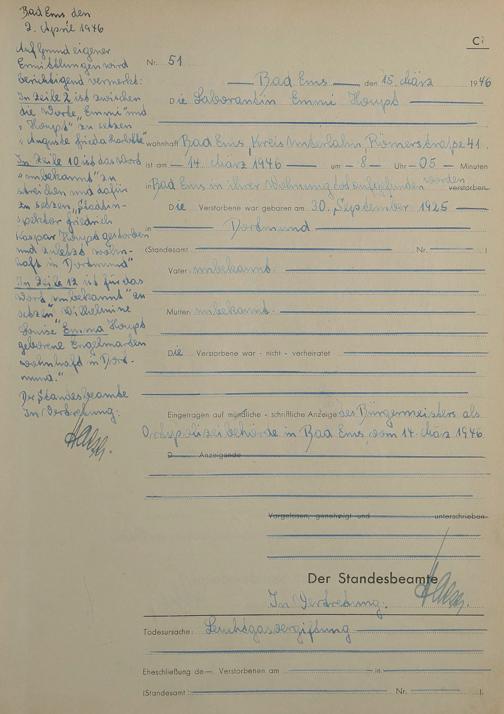 Bad Ems den
2. April 1946
Auf Grund eigener
Ermittlungen wird
berichtigend vermerkt:
In Zeile 2 ist zwischen
die Worte "Emmi" und
"Houpt" zu setzen
"Auguste Frieda Charlotte"
In Zeile 10 ist das Wort
"unbekannt" zu
streichen und dafür
zu setzen "
spektor Friedrich
Kaspar Houpt gestorben
und zuletzt wohn-
haft in Dortmund"
In Zeile 12 ist für das
Wort "unbekannt" zu
setzen "Wilhelmine
Louise Emma Houpt
geborene Engelmarden
wohnhaft in Dort-
mund."
Der Standesbeamte
In Vertretung:
C i
Nr. 51
Bad Ems, den 15. März 1946
Die Laborantin Emmi Houpt
wohnhaft Bad Ems, Kreis Unterlahn, Römerstraße 41.
ist am 14. März 1946 um 8 Uhr 05 Minuten
in Bad Ems in ihrer Wohnung tot aufgefunden worden verstorben.
Die Verstorbene war geboren am 30. September 1925
in Dortmund
(Standesamt Nr. )
Vater: unbekannt.
Mutter: unbekannt.
Die Verstorbene war - nicht - verheiratet
Eingetragen auf mündliche - schriftliche Anzeige des Bürgermeisters als
Ortspolizeibehörde in Bad Ems, vom 14. März 1946
D Anzeigende
Vorgelesen, genehmigt und unterschrieben
Der Standesbeamte
In Vertretung:
Todesursache: Leuchtgasvergiftung
Eheschließung de Verstorbenen am in
(Standesamt: Nr. ).